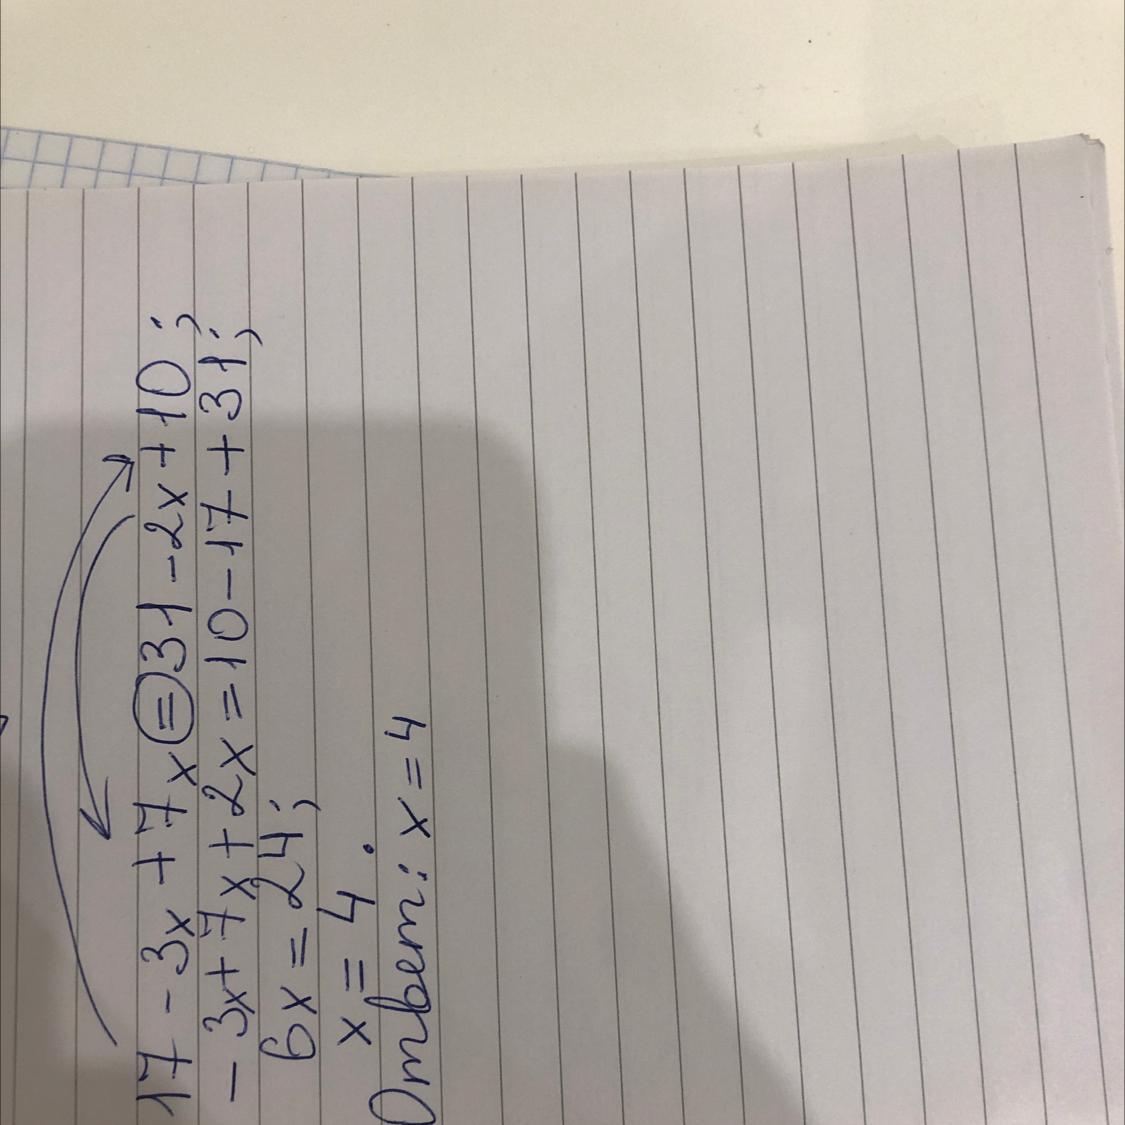 17 - 3x + 7x = 31 - 2x + 10;
- 3x + 7x + 2x = 10 - 17 + 31;
6x = 24;
x = 4.
Ответ: x = 4